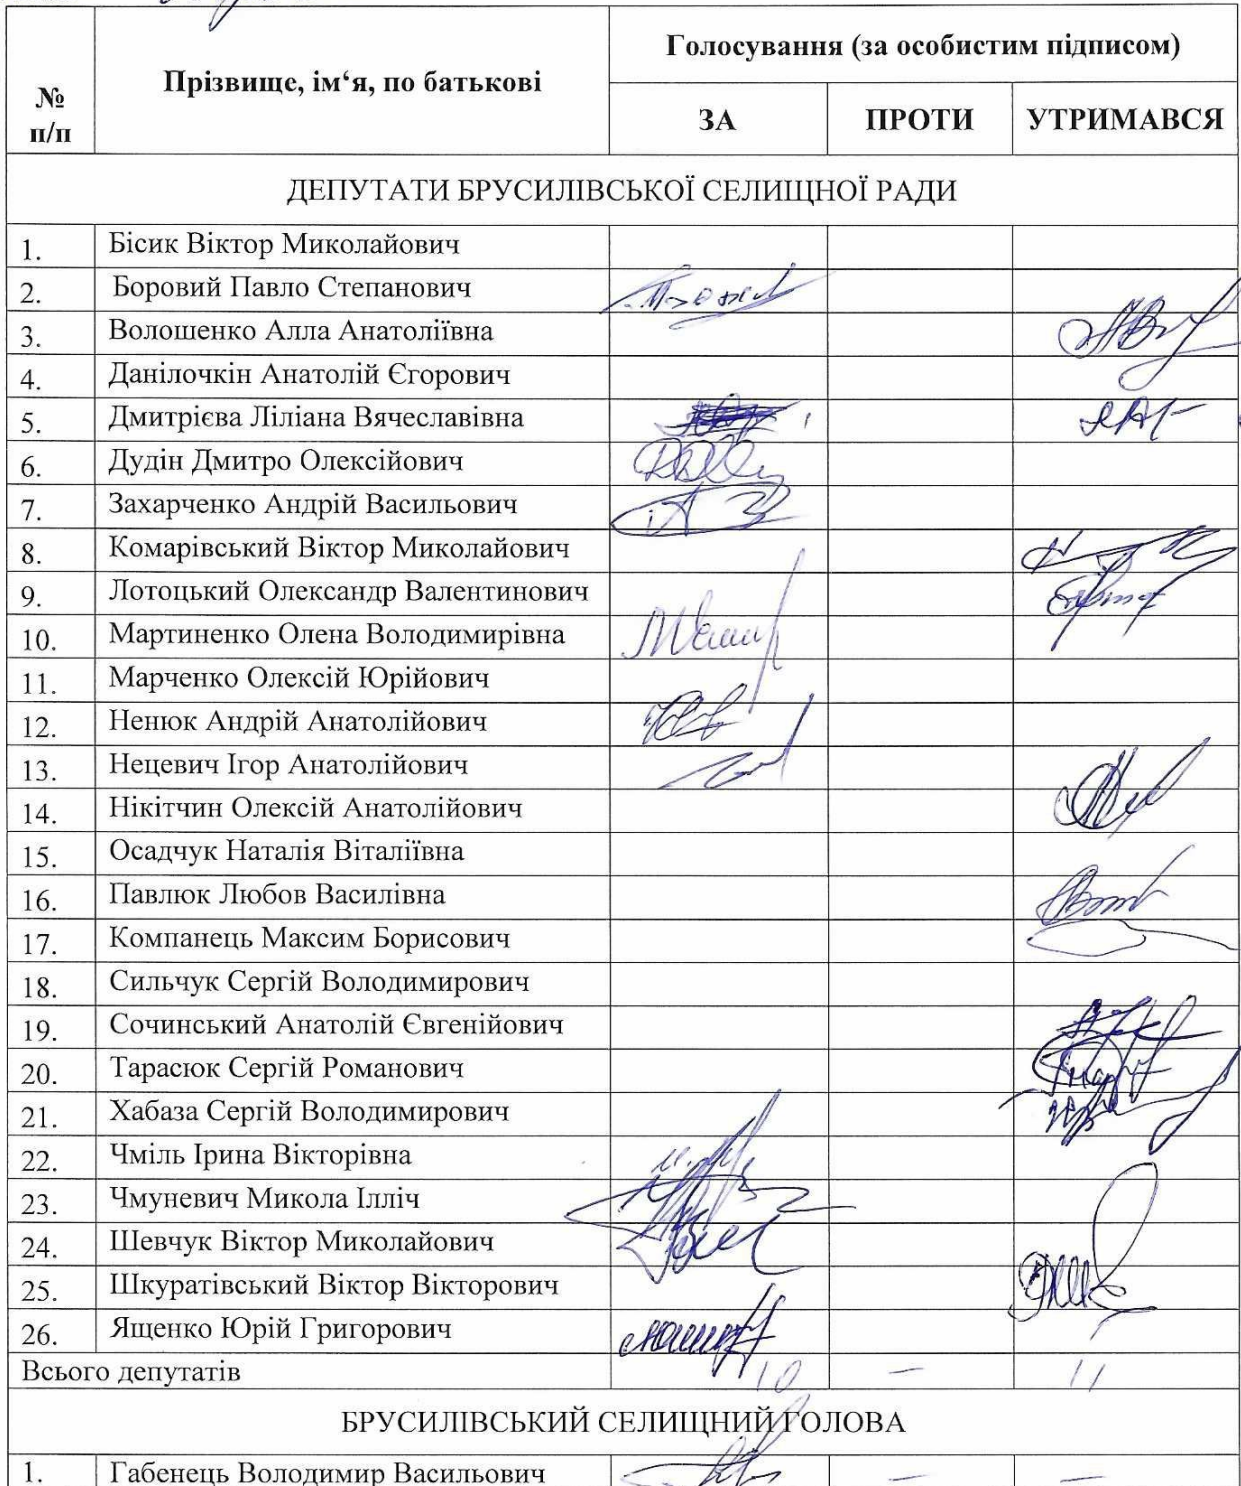 № п/п
Прізвище, ім‘я, по батькові
Голосування (за особистим підписом)
ЗА
ПРОТИ
УТРИМАВСЯ
ДЕПУТАТИ БРУСИЛІВСЬКОЇ СЕЛИЩНОЇ РАДИ
1. Бісик Віктор Миколайович
2. Боровий Павло Степанович
3. Волошенко Алла Анатоліївна
4. Данілочкін Анатолій Єгорович
5. Дмитрієва Ліліана Вячеславівна
6. Дудін Дмитро Олексійович
7. Захарченко Андрій Васильович
8. Комарівський Віктор Миколайович
9. Лотоцький Олександр Валентинович
10. Мартиненко Олена Володимирівна
11. Марченко Олексій Юрійович
12. Ненюк Андрій Анатолійович
13. Нецевич Ігор Анатолійович
14. Нікітчин Олексій Анатолійович
15. Осадчук Наталія Віталіївна
16. Павлюк Любов Василівна
17. Компанець Максим Борисович
18. Сильчук Сергій Володимирович
19. Сочинський Анатолій Євгенійович
20. Тарасюк Сергій Романович
21. Хабаза Сергій Володимирович
22. Чміль Ірина Вікторівна
23. Чмуневич Микола Ілліч
24. Шевчук Віктор Миколайович
25. Шкуратівський Віктор Вікторович
26. Ященко Юрій Григорович
Всього депутатів 10 — 11
БРУСИЛІВСЬКИЙ СЕЛИЩНИЙ ГОЛОВА
1. Габенець Володимир Васильович — —